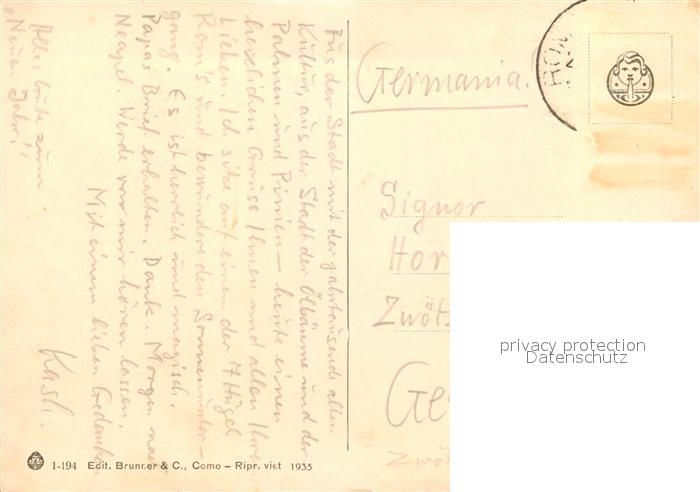 Aus der Stadt mit der jahrtausende alten
Kultur, aus der Stadt der Ölbäume und der
Palmen und Pinien – heute einen
herzlichen Gruss Ihnen und allen Ihren
Lieben. Ich sitze auf einem der 7 Hügel
Rom's und bewundere den Sonnenunter-
gang. Es ist herrlich und magisch.
Papas Brief erhalten. Dank. Morgen nach
Neapel. Werde von mir hören lassen.
Mit einem lieben Gedenken
Alles Gute zum
"Neuen Jahr"!
Germania.
ROM
Signor
Hor
Zwöt
Ge
Zwöt
privacy protection
Datenschutz
I-194 Edit. Brunner & C., Como – Ripr. viet 1935